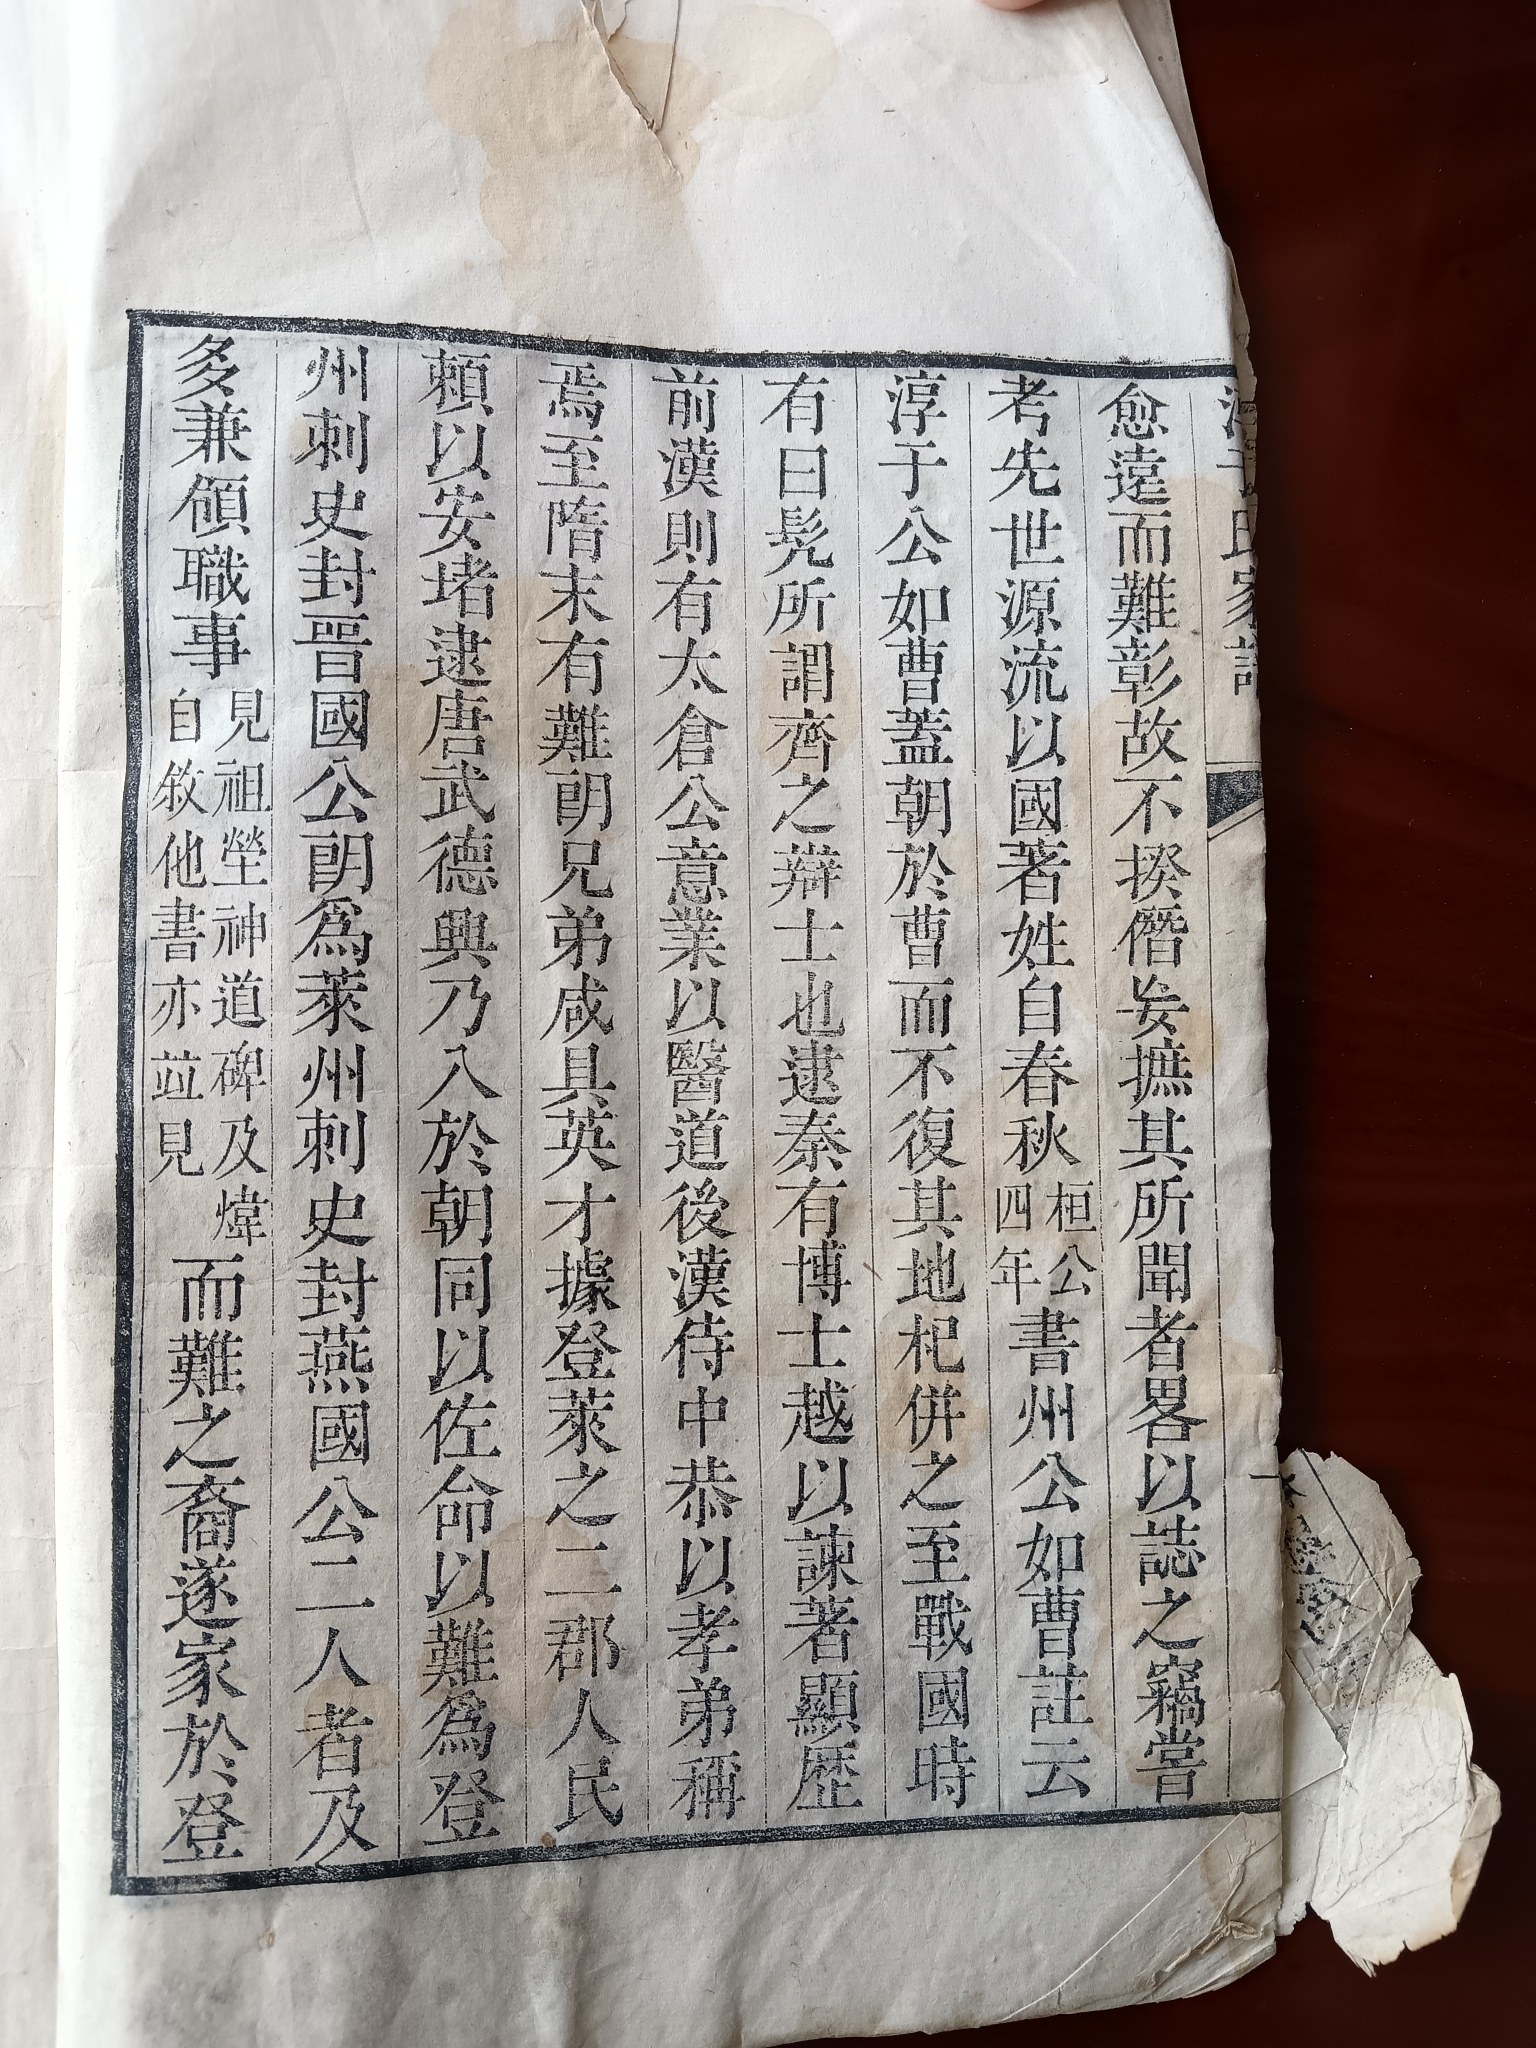 淳于氏家譜
愈遠而難彰故不揆僭妄摭其所聞者畧以誌之竊嘗
考先世源流以國著姓自春秋桓公四年書州公如曹註云
淳于公如曹蓋朝於曹而不復其地杞併之至戰國時
有曰髡所謂齊之辯士也逮秦有博士越以諫著顯歷
前漢則有太倉公意業以醫道後漢侍中恭以孝弟稱
焉至隋末有難朗兄弟咸具英才據登萊之二郡人民
賴以安堵逮唐武德興乃入於朝同以佐命以難為登
州刺史封晉國公朗為萊州刺史封燕國公二人者及
多兼領職事見祖塋神道碑及煒自敘他書亦竝見而難之裔遂家於登